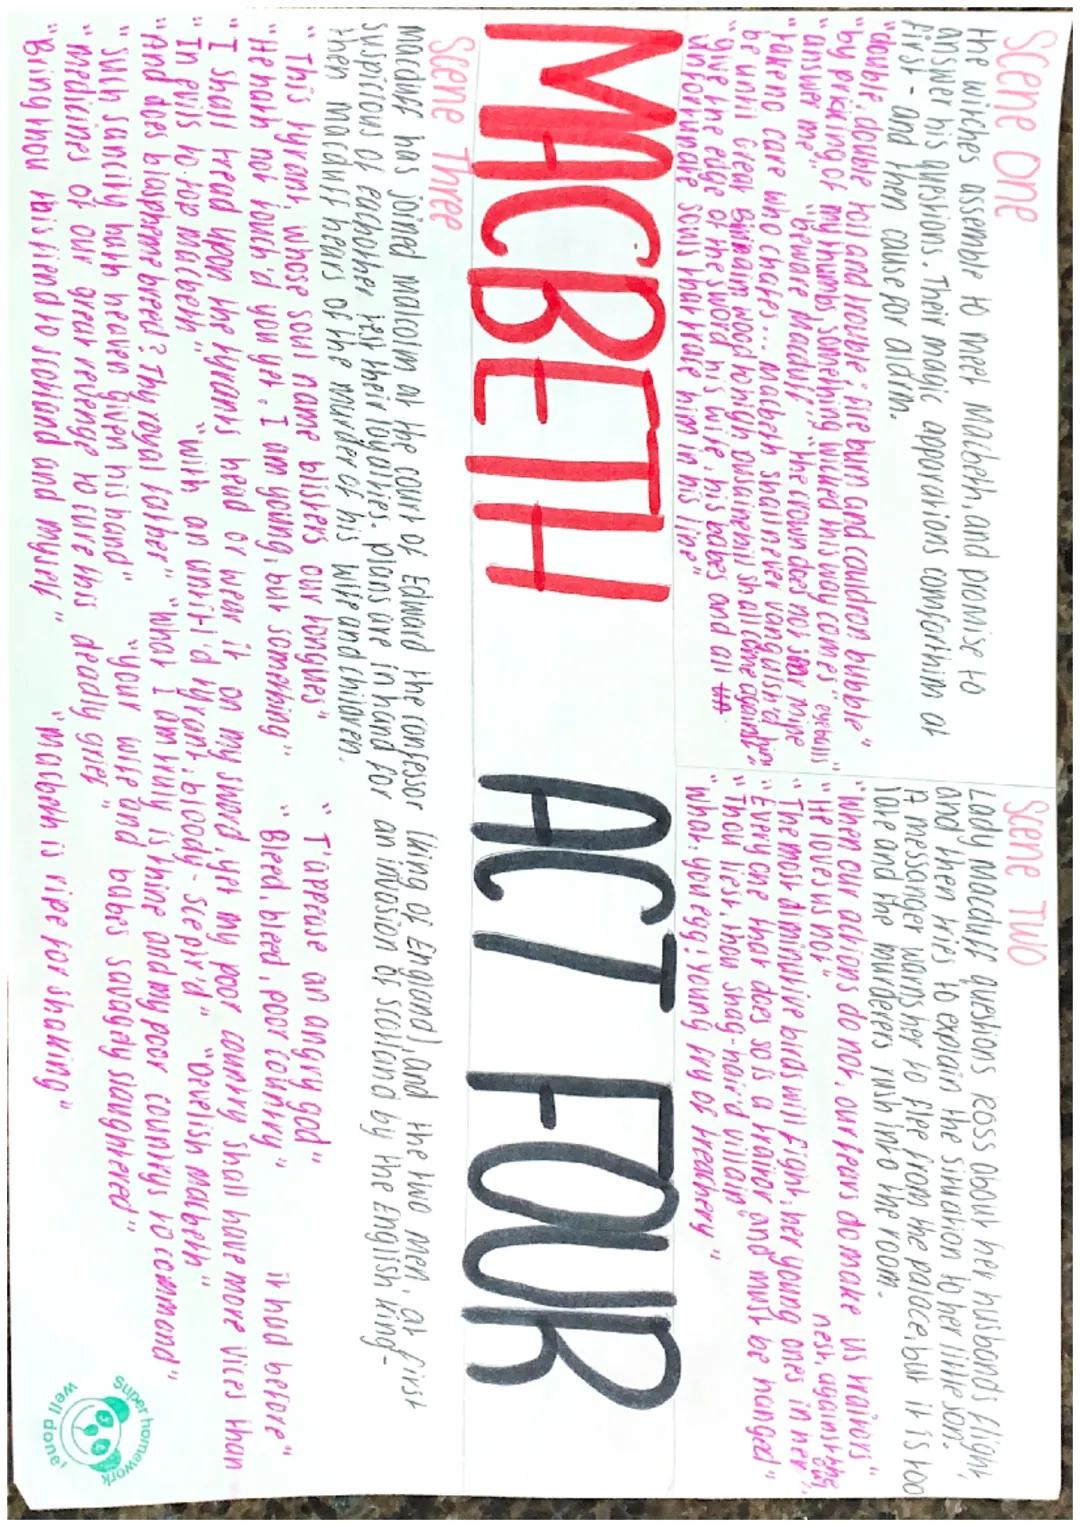 Scene One
the witches assemble to meet Macbeth, and promise to
answer his questions. Their magic apparations comfort him at
first - and then cause for alarm.
"double, double toil and trouble; fire burn and cauldron bubble"
"by pricking of my thumbs something wicked this way comes" "eyeballs"
"answer me" "beware Macduff" "the crown does not sear mine
"take no care who chafes... Macbeth shall never vanquish'd him
be until Great Birnam wood to high Dusaine hill shall come against"
"give the edge of the sword his wife, his babes and all
unfortunate souls that trace him in his line"
Scene Two
Lady Macduff questions Ross about her husbands flight,
and then tries to explain the situation to her little son.
A messanger warns her to flee from the palace, but it is too
late and the murderers rush into the room.
"When our actions do not, our fears do make us traitors"
"He loves us not"
"The most diminutive birds will fight, her young ones in her
nest, against the owl"
"Every one that does so is a traitor and must be hanged"
"Thou liest, thou shag-hair'd villain"
"What, you egg! young fry of treachery"
MACBETH ACT FOUR
Scene Three
macduff has joined malcolm at the court of Edward the confessor (king of England), and the two men, at first
suspicious of eachother test their loyalties. plans are in hand for an invasion of scotland by the English king -
then macduff hears of the murder of his wife and children.
"This tyrant, whose soul name blisters our tongues" "T'appease an angry god"
"He hath not touch'd you yet. I am young, but something" "Bleed, bleed, poor country" it had before"
"I shall tread upon the tyrants head or wear it on my sword, yet my poor country shall have more vices than
"In evils to top macbeth" "with an untitl'd tyrant, bloody-scept'rd" "Devilish macbeth"
"And does blaspheme breed? Thy royal father" "What I am truly is thine and my poor countrys to command"
"Such sancity hath heaven given his hand" "your wife and babes savagely slaughtered"
"medicines of our great revenge to cure this deadly grief"
"Bring thou this fiend to scotland and myself" "macbeth is ripe for shaking"
super homework
well done!